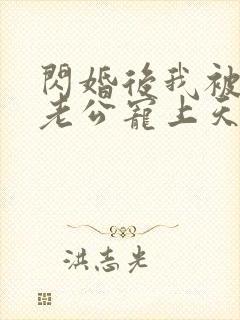 閃婚後我被
老公寵上天
洪志光